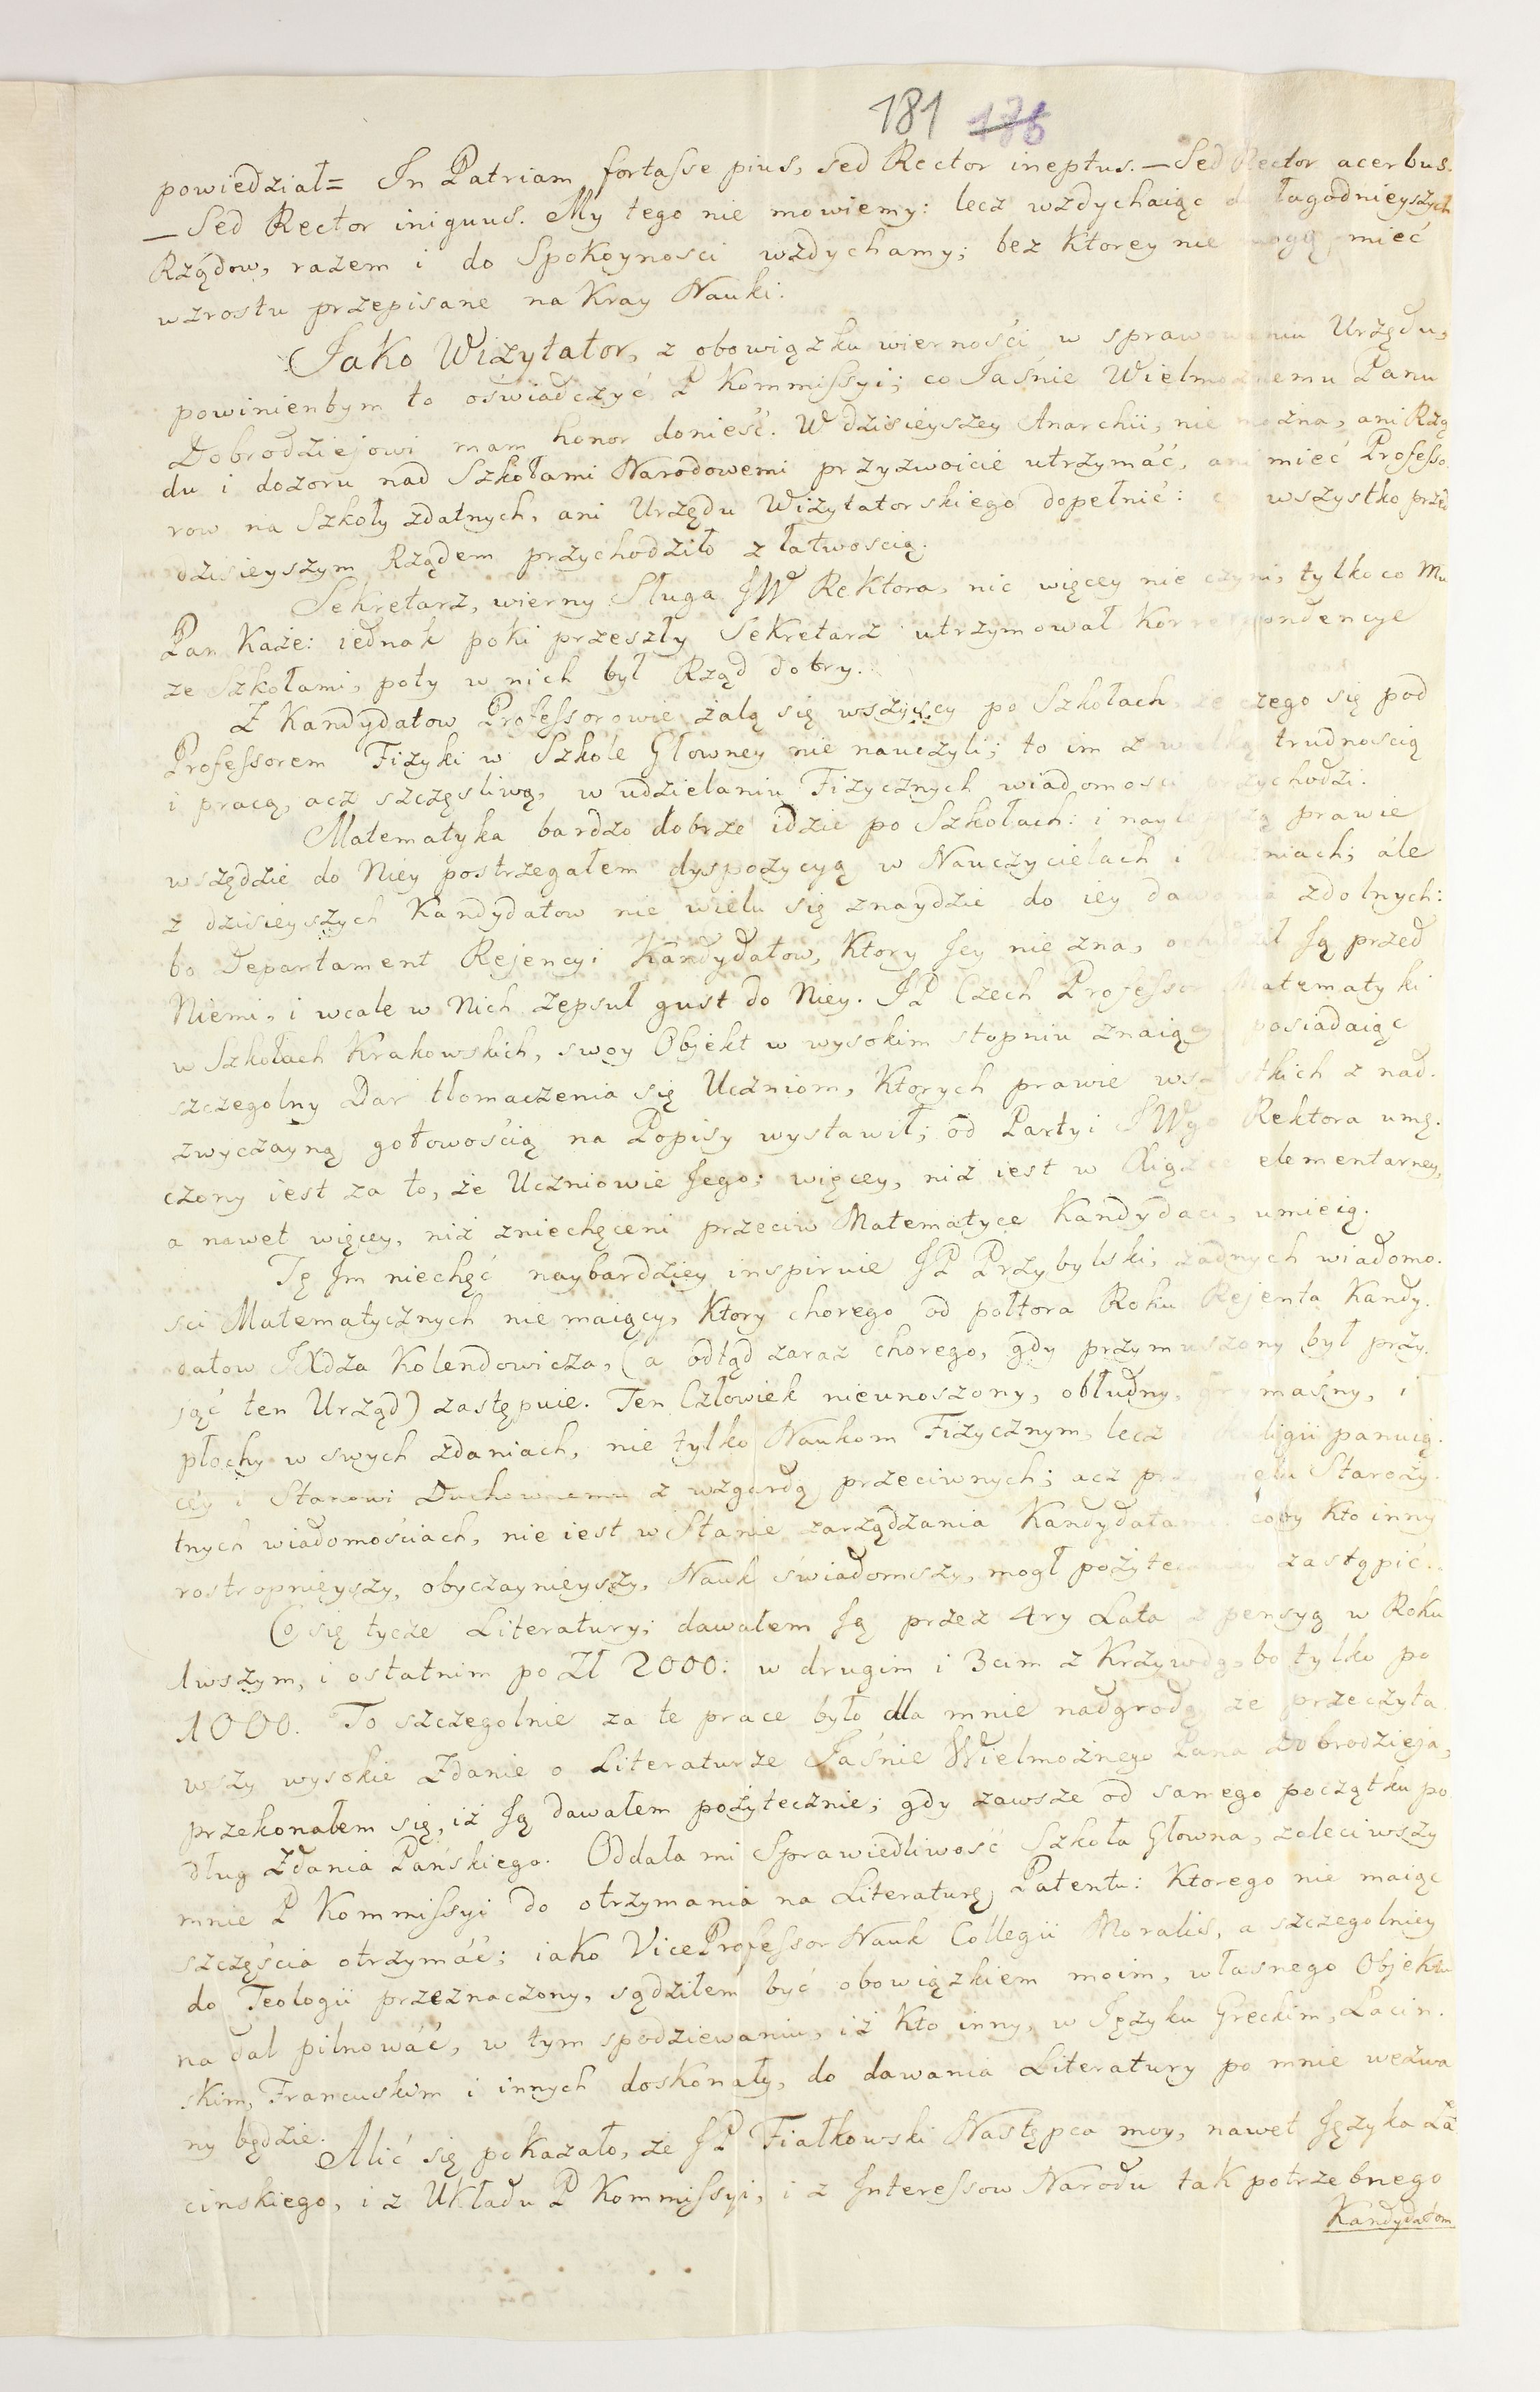 181 176
powiedział= In Patriam fortasse pius, sed Rector ineptus. — Sed Rector acerbus.
— Sed Rector iniquus. My tego nie mowiemy: lecz wzdychaiąc do łagodnieyszych
Rządow, razem i do Spokoyności wzdychamy; bez ktorey nie mogą mieć
wzrostu przepisane na Kray Nauki.
Jako Wizytator, z obowiązku wierności w sprawowaniu Urzędu,
powinienbym to oświadczyć P Kommissyi; co Jaśnie Wielmożnemu Panu
Dobrodziejowi mam honor donieść. W dzisieyszey Anarchii, nie można, ani Rzą
du i dozoru nad Szkołami Narodowemi przyzwoicie utrzymać, ani mieć Professo
row na Szkoły zdatnych, ani Urzędu Wizytatorskiego dopełnić: co wszystko przed
dzisieyszym Rządem przychodziło z łatwością.
Sekretarz, wierny Sługa JW Rektora, nic więcey nie czyni, tylko co Mu
Pan Każe: iednak poki przeszły Sekretarz utrzymował Korrespondencye
ze Szkołami, poty w nich był Rząd dobry.
Z Kandydatow Professorowie żalą się wszyscy po Szkołach, że czego się pod
Professorem Fizyki w Szkole Głowney nie nauczyli; to im z wielką trudnością
i pracą, acz szczęśliwą, w udzielaniu Fizycznych wiadomości przychodzi.
Matematyka bardzo dobrze idzie po Szkołach: i naylepszą prawie
wszędzie do Niey postrzegałem dyspozycyą w Nauczycielach i Uczniach; ále
z dzisieyszych Kandydatow nie wielu się znaydzie do iey dawania zdolnych:
bo Departament Rejencyi Kandydatow, Ktory Jey nie zna, ochydził Ją przed
Niemi, i wcale w Nich zepsuł gust do Niey. JP Czech Professor Matematyki
w Szkołach Krakowskich, swoy Objekt w wysokim stopniu znaiący posiadaiąc
szczegolny Dar tłomaczenia się Uczniom, Ktorych prawie wszystkich z nad.
zwyczayną gotowością na Popisy wystawił; od Partyi JWgo Rektora umę.
czony iest za to, że Uczniowie Jego; więcey, niż iest w Xiążce elementarney,
a nawet więcey, niż zniechęceni przeciw Matematyce Kandydaci, umieią.
Tę Jm niechęć naybardziey inspiruie JP Przybylski, żadnych wiadomo.
ści Matematycznych nie maiący, Ktory chorego od połtora Roku Rejenta Kandy.
datow JXdza Kolendowicza, (a odtąd zaraz chorego, gdy przymuszony był przy.
jąć ten Urząd) zastępuie. Ten Człowiek nieunoszony, obłudny, grymaśny, i
płochy w swych zdaniach, nie tylko Naukom Fizycznym lecz Religii panuią.
cey i Stanowi Duchownemu z wzgardą przeciwnych; acz przy Staroży.
tnych wiadomościach, nie iest w Stanie zarządzania Kandydatami. coby Kto inny
rostropnieyszy, obyczaynieyszy, Nauk świadomszy, mogł pożytecznie zastąpić.
Co się tycze Literatury; dawałem Ją przez 4ry Lata z pensyą w Roku
1wszym, i ostatnim po Zł 2000: w drugim i 3cim z Krzywdą, bo tylko po
1000. To szczegolnie za te prace było dla mnie nadgrodą, że przeczyta
wszy wysokie Zdanie o Literaturze Jaśnie Wielmożnego Pana Dobrodzieja,
przekonałem się, iż Ją dawałem pożytecznie; gdy zawsze od samego początku po
dług Zdania Pańskiego. Oddała mi Sprawiedliwość Szkoła Głowna, zaleciwszy
mnie P Kommissyi do otrzymania na Literaturę Patentu: Ktorego nie maiąc
szczęścia otrzymáć; iako ViceProfessor Nauk Collegii Moralis, a szczegolniey
do Teologii przeznaczony, sądziłem być obowiązkiem moim, własnego Objektu
na dal pilnowáć, w tym spodziewaniu, iż Kto inny, w Języku Greckim, Łacin.
skim, Francuskim i innych doskonały, do dawania Literatury po mnie wezwa
ny będzie.
Alić się pokazało, że JP Fiałkowski Następca moy, nawet Języka Ła
cinskiego, i z Układu P Kommissyi, i z Interessow Narodu tak potrzebnego
Kandydatom